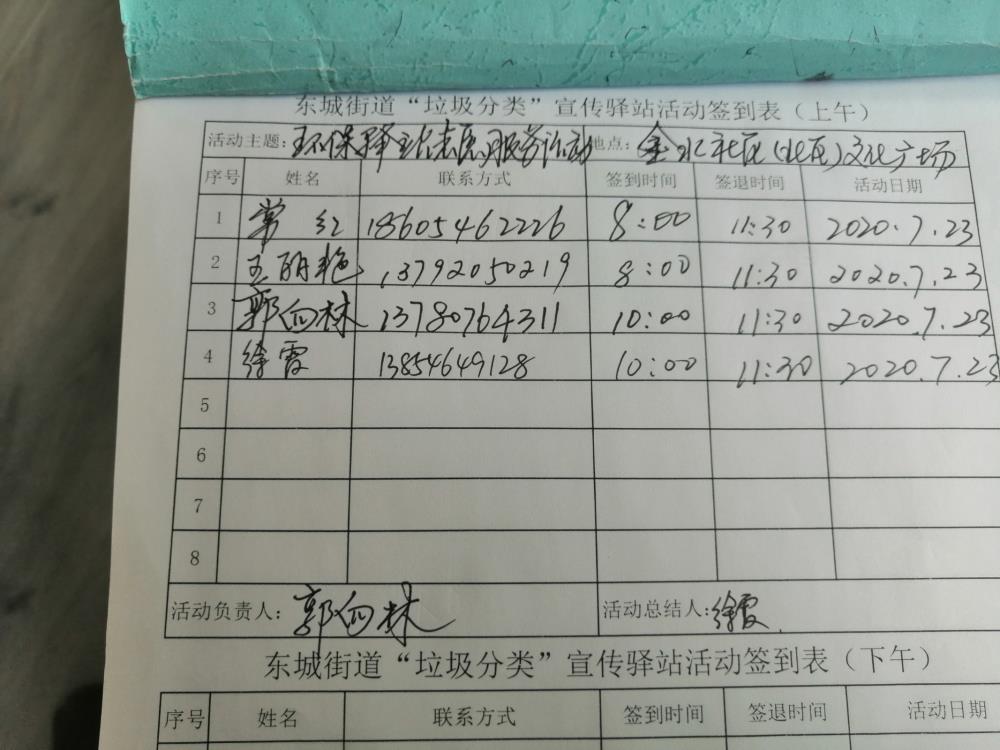 东城街道“垃圾分类”宣传驿站活动签到表（上午）
活动主题：环保驿站志愿服务活动 地点：金水社区（北区）文化广场
序号 姓名 联系方式 签到时间 签退时间 活动日期
1 常红 18605462226 8:00 11:30 2020.7.23
2 王丽艳 13792050219 8:00 11:30 2020.7.23
3 郭向林 13780764311 10:00 11:30 2020.7.23
4 徐霞 13854649128 10:00 11:30 2020.7.23
5
6
7
8
活动负责人：郭向林 活动总结人：徐霞
东城街道“垃圾分类”宣传驿站活动签到表（下午）
序号 姓名 联系方式 签到时间 签退时间 活动日期